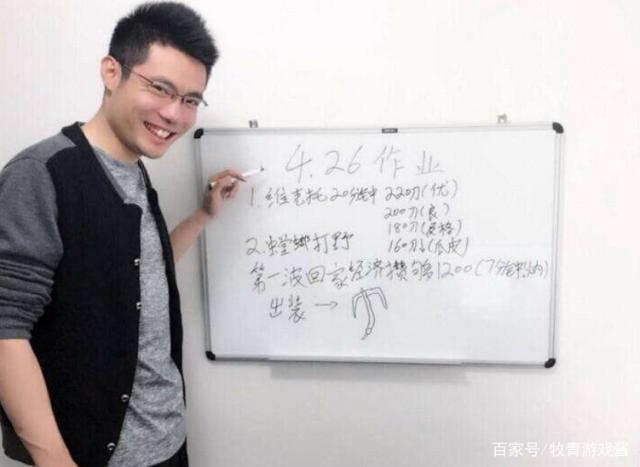 4.26作业
1.维克托20分钟 220刀(优)
200刀(良)
180刀(及格)
2.螳螂打野 160刀(瓜皮)
第一波回家经济攒够1200(7分钟内)
出装→
百家号/牧青游戏酱